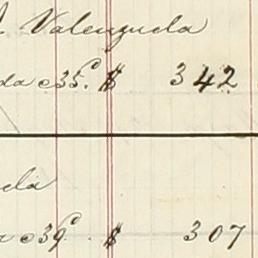 Valenzuela
da c 35.c $ 342
ela
a c 39.c $ 307